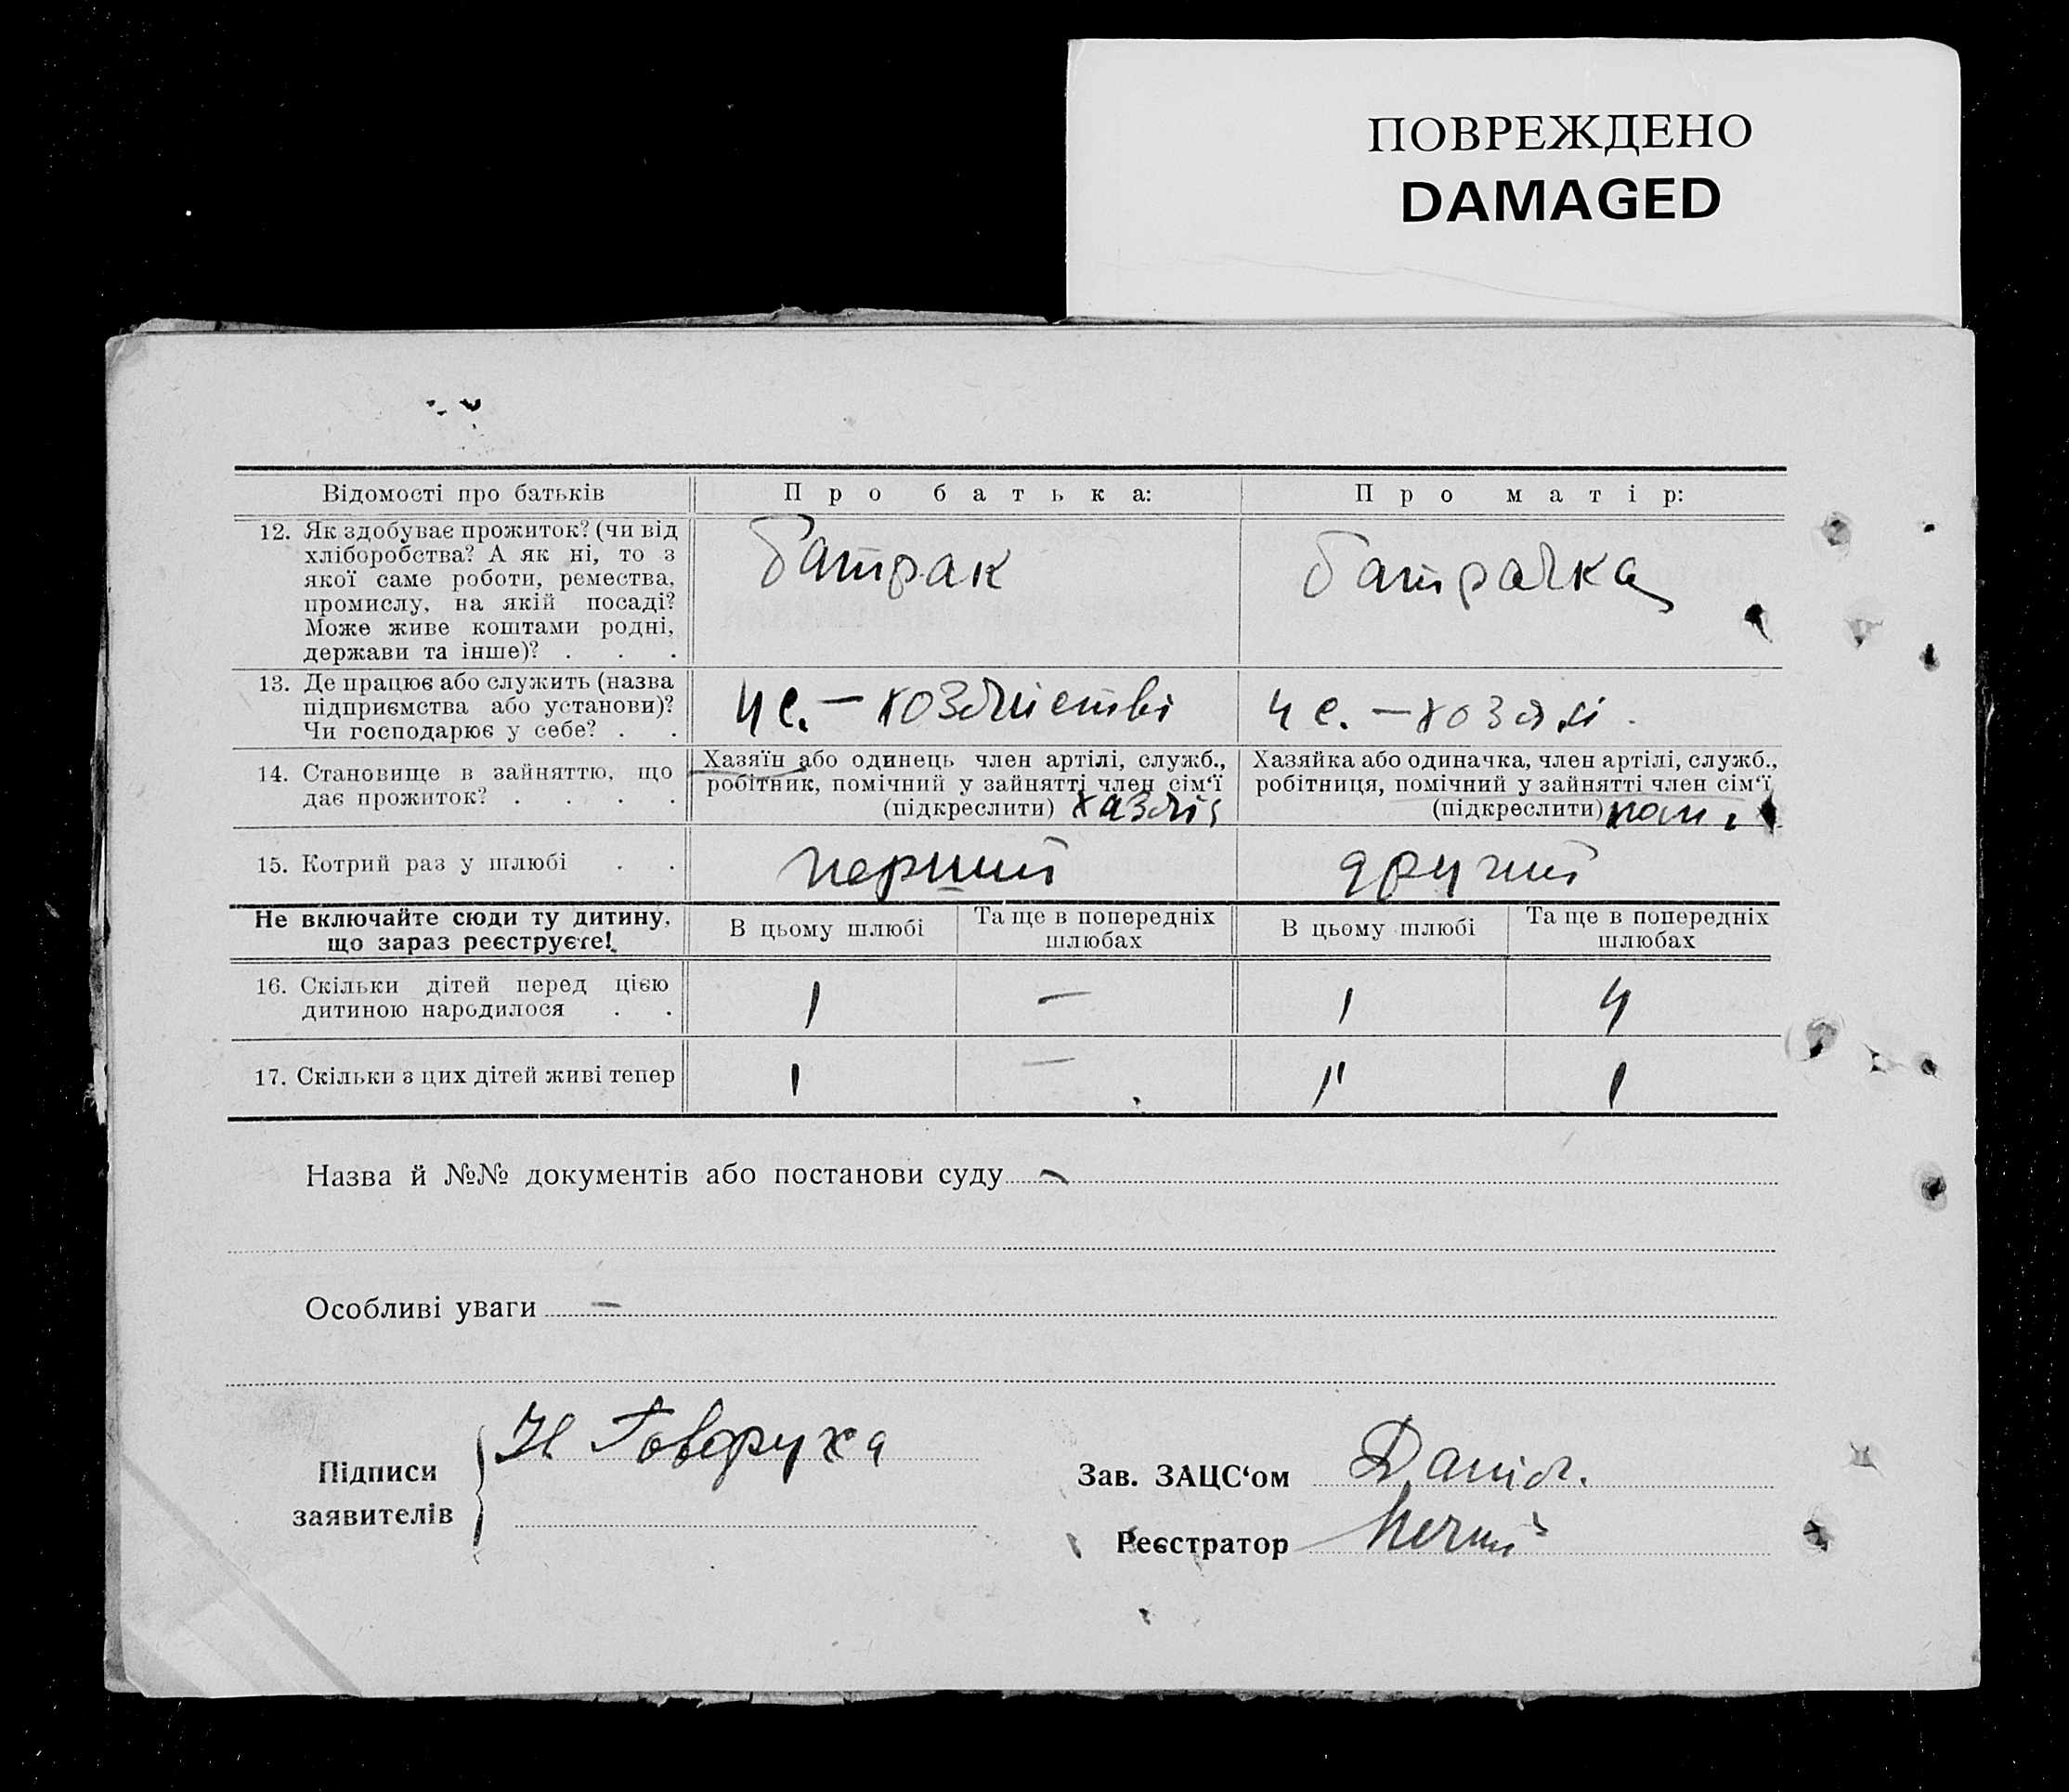 ПОВРЕЖДЕНО
DAMAGED
Відомості про батьків
Про батька:
Про матір:
12. Як здобуває прожиток? (чи від
хліборобства? А як ні, то з
якої саме роботи, ремества,
промислу, на якій посаді?
Може живе коштами родні,
держави та інше)? . . .
батрак
батрачка
13. Де працює або служить (назва
підприємства або установи)?
Чи господарює у себе? . .
14. Становище в зайняттю, що
дає прожиток? . . . .
Хазяїн або одинець член артілі, служб.,
робітник, помічний у зайнятті член сім‘ї
(підкреслити)
Хазяйка або одиначка, член артілі, служб.,
робітниця, помічний у зайнятті член сім‘ї
(підкреслити)
15. Котрий раз у шлюбі . .
перший
другий
Не включайте сюди ту дитину,
що зараз реєструєте!
В цьому шлюбі
Та ще в попередніх
шлюбах
В цьому шлюбі
Та ще в попередніх
шлюбах
16. Скільки дітей перед цією
дитиною народилося . .
1 — 1 4
17. Скільки з цих дітей живі тепер
1 — 1 1
Назва й №№ документів або постанови суду —
Особливі уваги —
Підписи
заявителів
Н Говоруха
Зав. ЗАЦС‘ом
Реєстратор